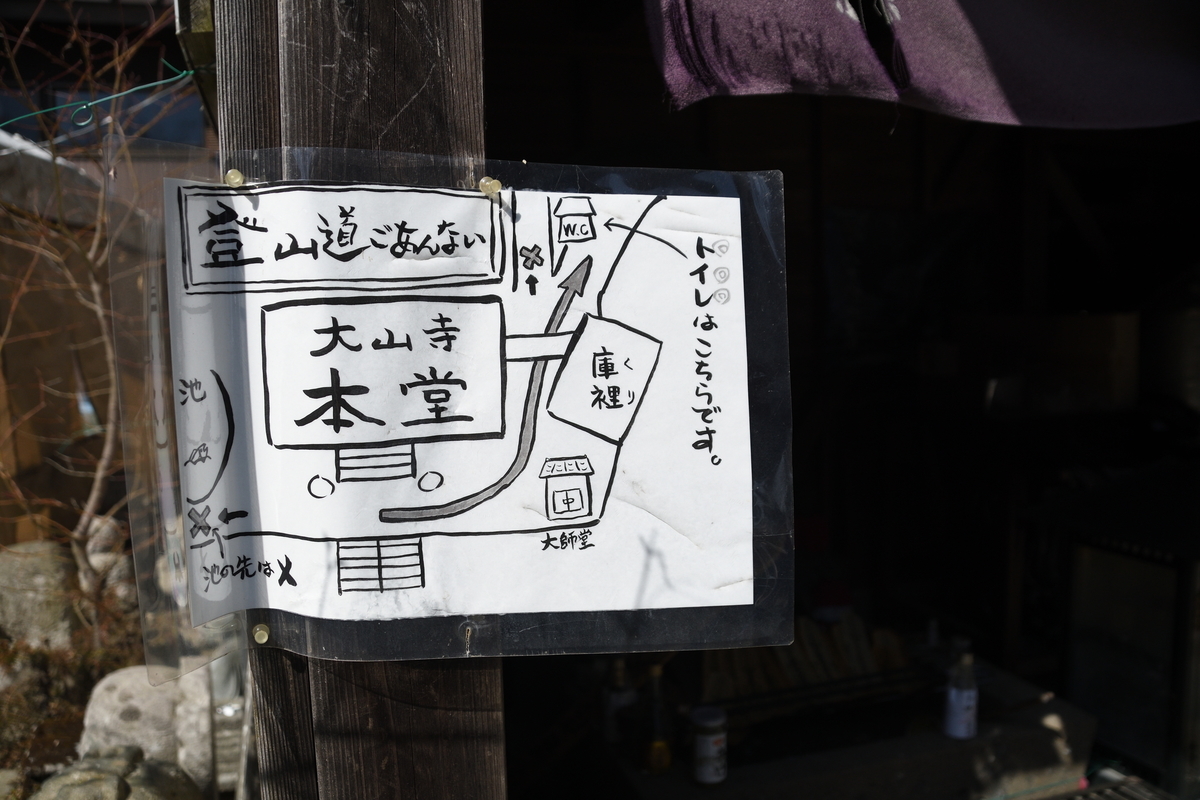 登山道ごあんない
W.C
トイレはこちらです。
大山寺
本堂
庫裡
くり
池
中
大師堂
池の先は✗